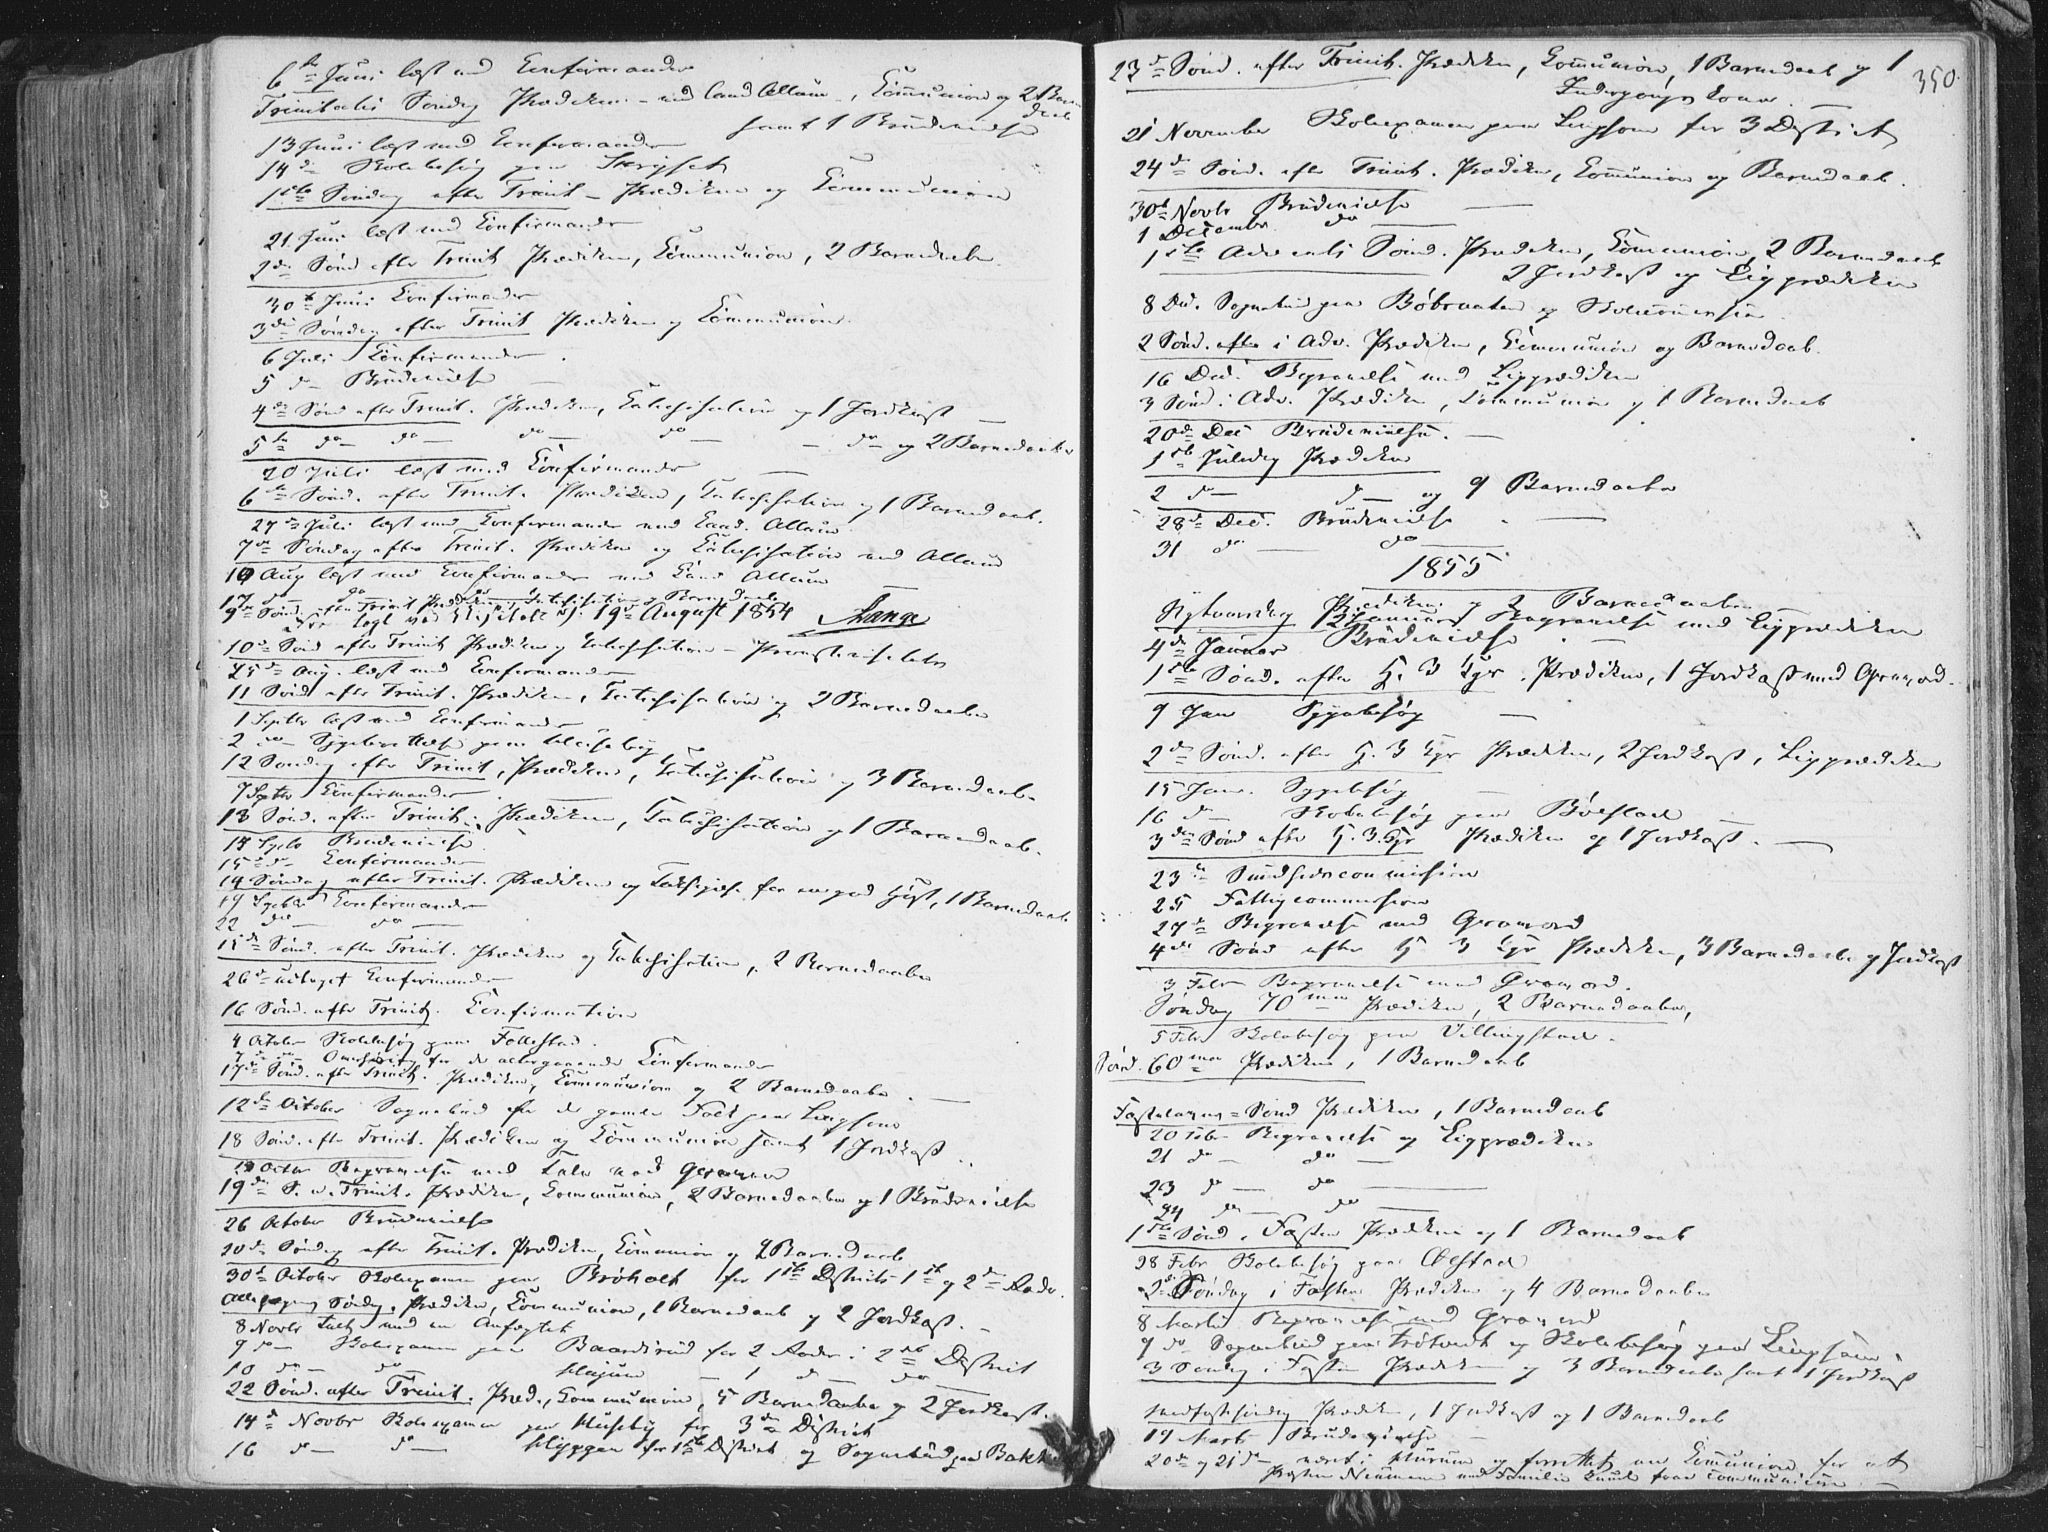 6te Juni læst med Confirmander
Trinitatis Søndag Prædiken - ved Cand Allum -, Communion og 2 Barnedaab
samt 1 Brudevielse
13 Juni læst med Confirmander
14 d Skolebesøg paa
1ste Søndag efter Trinit - Prædiken og Communion
21 Juni læst med Confirmander
2den Sønd efter Trinit Prædiken, Communion, 2 Barnedaabe
30te Juni Confirmander
3die Søndag efter Trinit Prædiken og Communion
6 Juli Confirmander
5 do Brudevielse
4de Sønd efter Trinit. Prædiken, Catechisation og 1 Jordkast
5te do do do do - do og 2 Barnedaabe
20 Juli læst med Confirmander
6te Sønd. efter Trinit. Prædiken, Catechisation og 1 Barnedaab.
27de Juli læst med Confirmander med Cand. Allum
7de Søndag efter Trinit. Prædiken og Catechisation ved Allum
10 Aug læst med Confirmander med Cand Allum
17 do do
9de Sønd. efter Trinit Prædiken, Catechisation og Barnedaab
19de August 1854 Lange
10de Sønd efter Trinit Prædiken og Catechisation - Provstevisitats
25de Aug. læst med Confirmander
11 Sønd efter Trinit. Prædiken, Catechisation og 2 Barnedaabe
1 Septbr læst med Confirmander
2 do paa Huseby
12 Søndag efter Trinit, Prædiken, Catechisation og 3 Barnedaabe
7 Septbr Confirmander
13 Sønd. efter Trinit. Prædiken, Catechisation og 1 Barnedaab.
14 Septb Brudevielse
15 do Confirmander
14 Søndag efter Trinit. Prædiken og Taksigelse for en god Høst, 1 Barnedaab
19 Septbr Confirmander
22 do do
15de Sønd. efter Trinit. Prædiken og Catechisation, 2 Barnedaabe
26de udtaget Confirmander
16 Sønd. efter Trinit. Confirmation
4 October Skolebesøg paa Follestad.
7de do for de altergaaende Confirmander
17de Sønd. efter Trinit. Prædiken, Communion og 2 Barnedaabe.
12de October Sognebud for de gamle Folk paa
18 Sønd. efter Trinit. Prædiken og Communion samt 1 Jordkast.
19 Octbr Begravelse med Tale ved Graven
19de S. e. Trinit. Prædiken, Communion, 2 Barnedaabe og 1 Brudevielse
26 October Brudevielse
20de Søndag efter Trinit. Prædiken, Communion og 2 Barnedaab
30te October Skoleexamen paa Brøholt for 1ste Districts 1ste og 2den Rode.
Allehelgens Søndag, Prædiken, Communion, 1 Barnedaab og 2 Jordkast.
8 Novbr Talt med en Anfægtet
9 do Skoleexamen paa Baardsrud for 2 Roder i 2det District
10 do do - 1 do do
22 Sønd. efter Trinit. Præd., Communion, 5 Barnedaabe og 2 Jordkast.
14d Novbr Skoleexamen paa Huseby for 3die District
16 do do Klyppen for 1ste District og Sognebud paa
350
23de Sønd. efter Trinit. Prædiken, Communion, 1 Barnedaab og 1
Indgangskone.
21 November Skoleexamen paa for 3 District
24de Sønd. efter Trinit. Prædiken, Communion og Barnedaab.
30te Novbr Brudevielse
1 December do
1ste Advents Sønd. Prædiken, Communion, 2 Barnedaab
2 Jordkast og Ligprædiken
8 Dec. Sognebud paa og Skolecommission
2 Sønd. i Adv. Prædiken, Communion og Barnedaab.
16 Dec. Begravelse med Ligprædiken
3 Sønd. i Adv. Prædiken, Communion og 1 Barnedaab
20de Dec Brudevielse.
1ste Juledag Prædiken
2 do do og 9 Barnedaabe
28de Dec. Brudevielse
31 do do
1855
Nytaarsdag Prædiken og 2 Barnedaabe
Januar Begravelse med Ligprædiken
4de Januar Brudevielse
1ste Sønd. efter H. 3 Kgr. Prædiken, 1 Jordkast med Gravord.
9 Jan Sygebesøg
2de Sønd. efter H. 3 Kgr Prædiken, 2 Jordkast, Ligprædiken
15 Jan. Sygebesøg
16 do Skolebesøg paa Bølstad
3die Sønd efter H. 3. Kgr Prædiken og 1 Jordkast.
23de Sundhedscommission
25 Fattigcommission
27de Begravelse med Gravord
4de Sønd efter H 3 Kgr Prædiken, 3 Barnedaabe og Jordkast
3 Febr Begravelse med Gravord.
Søndag 70men Prædiken, 2 Barnedaabe,
5 Febr Skolebesøg paa Villingstad.
Sønd. 60men Prædiken, 1 Barnedaab
Fastelavns-Sønd Prædiken, 1 Barnedaab
20 Febr Begravelse og Ligprædiken
21 do do
23 do do
24 do do
1ste Sønd. i Fasten Prædiken og 1 Barnedaab
28 Febr Skolebesøg paa Ølstad
2de Søndag i Fasten Prædiken og 4 Barnedaabe
8 Marts Begravelse med Gravord
9 do Sognebud paa og Skolebesøg paa
3 Søndag i Fasten Prædiken og 3 Barnedaabe samt 1 Jordkast
Midfastesøndag Prædiken, 1 Jordkast og 1 Barnedaab
19 Marts Brudevielse
20de og 21de været i Hurum og forrettet en Communion for at
Præsten Neumann med Familie kunde faae communicere